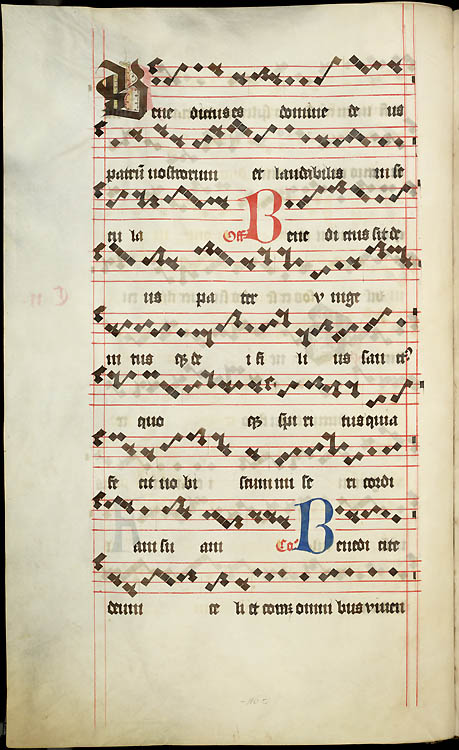 Bene dictus es domine de us
patrū nostrorum et laudabilis in se
cu la Off Bene di ctus sit de
us pa ter v nige
ni tus q3 de i fi li us sanct9
quo q3 spi ri tus quia
fe cit no bi scum mi se ri cordi
am su am Co Benedi cite
deum ce li et corā omni bus viven